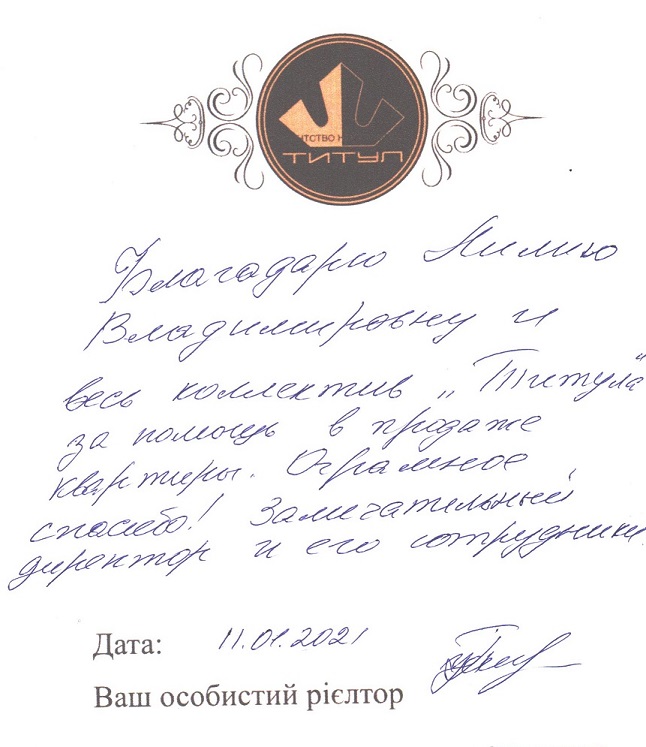 ТСТВО Н
ТИТУЛ
Благодарю Лилию
Владимировну и
весь коллектив „Титула“
за помощь в продаже
квартиры. Огромное
спасибо! Замечательный
директор и его сотрудники.
Дата: 11.01.2021
Ваш особистий рієлтор